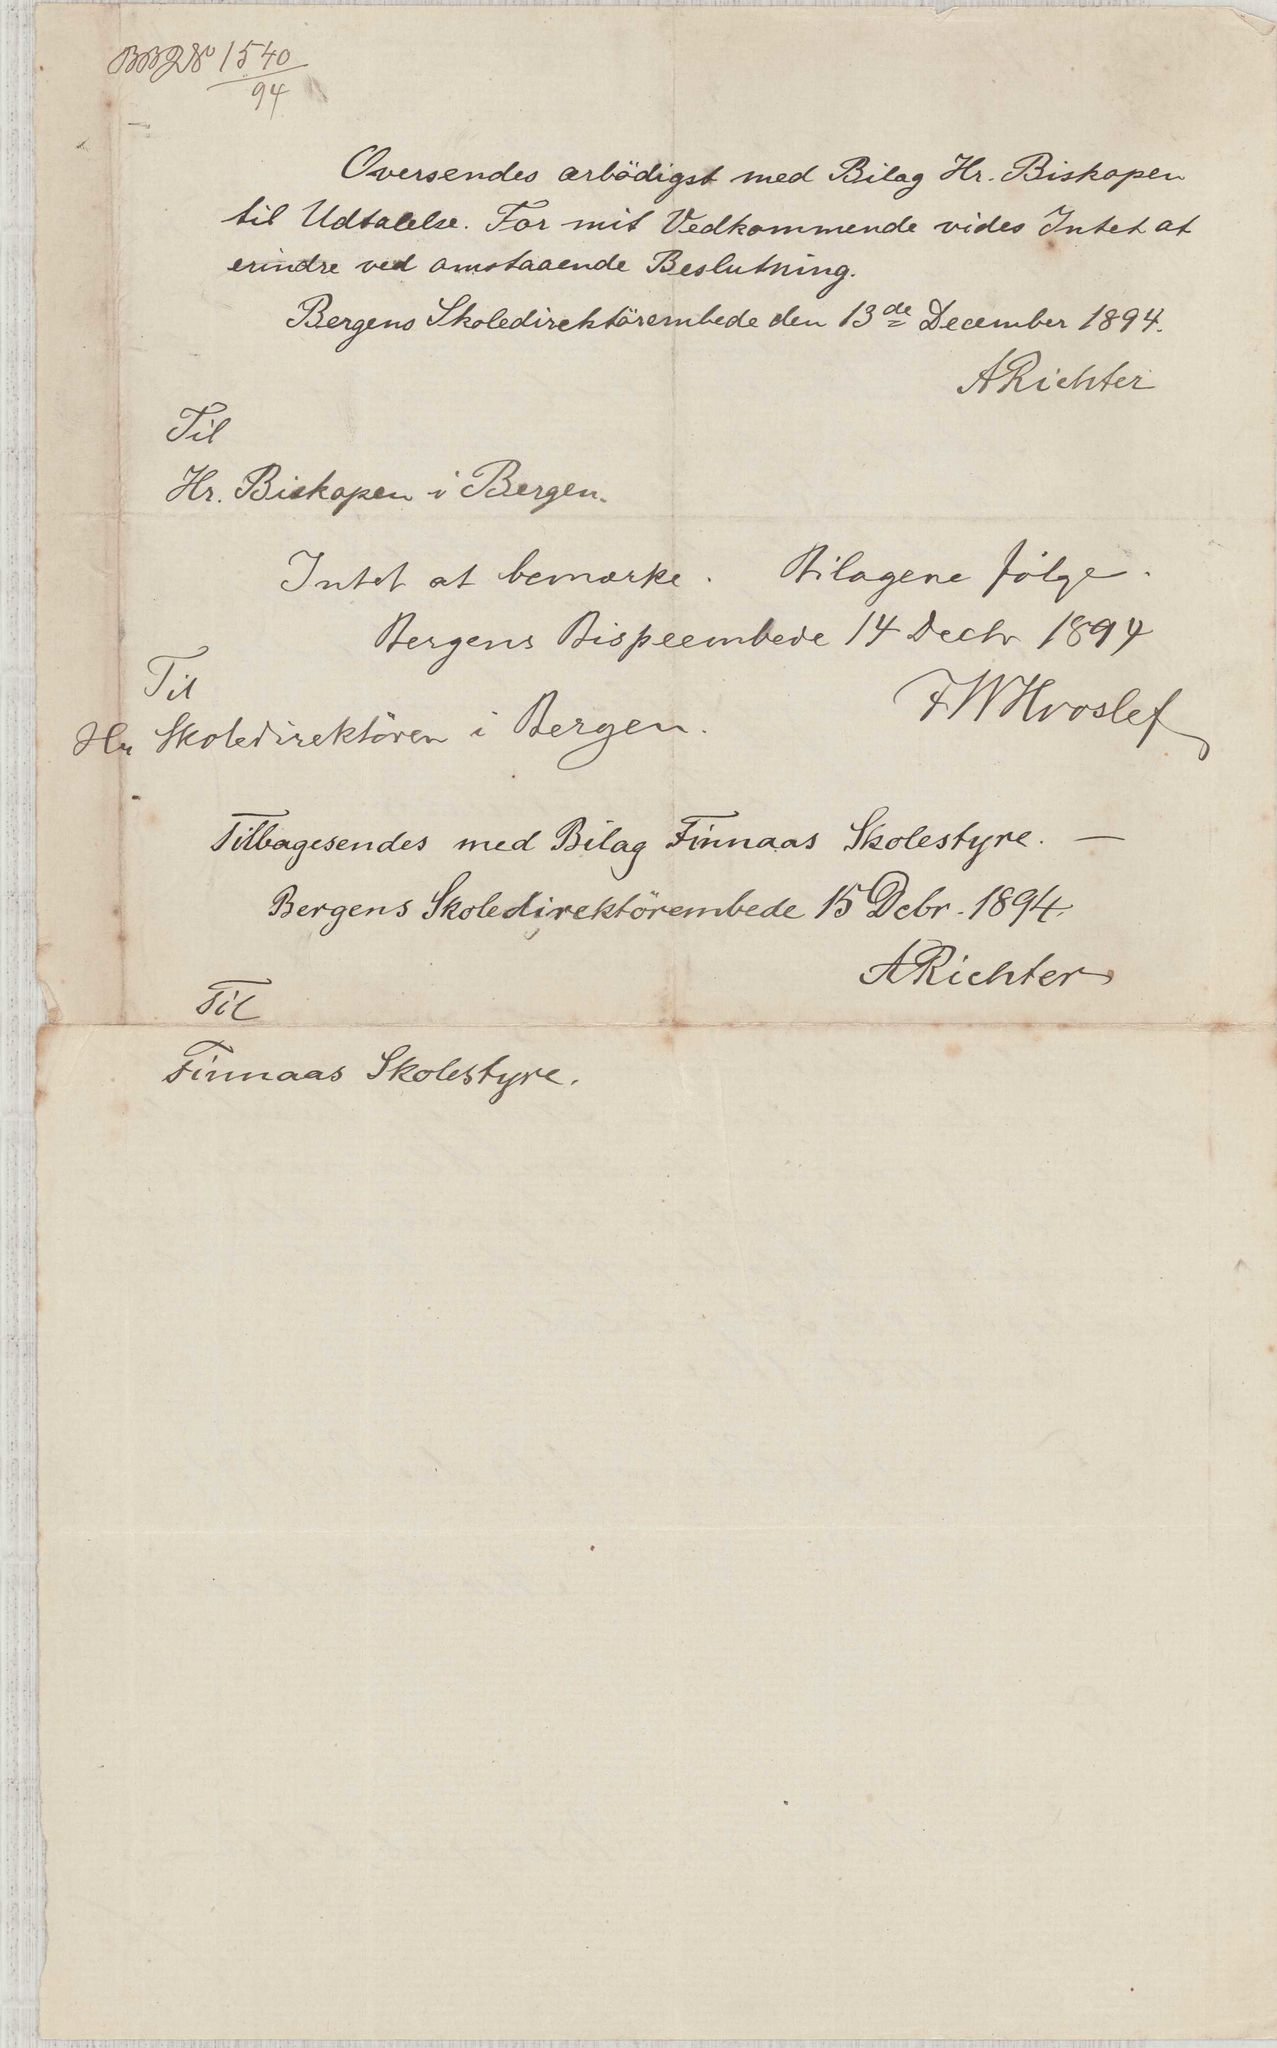 BBJN° 1540
94
Oversendes ærbödigst med Bilag Hr. Biskopen
til Udtalelse. For mit Vedkommende vides Intet at
erindre ved omstaaende Beslutning.
Bergens Skoledirektörembede den 13de December 1894.
ARichter
Til
Hr. Biskopen i Bergen.
Intet at bemærke. Bilagene følge.
Bergens Bispeembede 14 Decbr 1894
FWHvoslef
Til
Hr Skoledirektören i Bergen.
Tilbagesendes med Bilag Finnaas Skolestyre. —
Bergens Skoledirektörembede 15 Dcbr. 1894.
ARichter
Til
Finnaas Skolestyre.